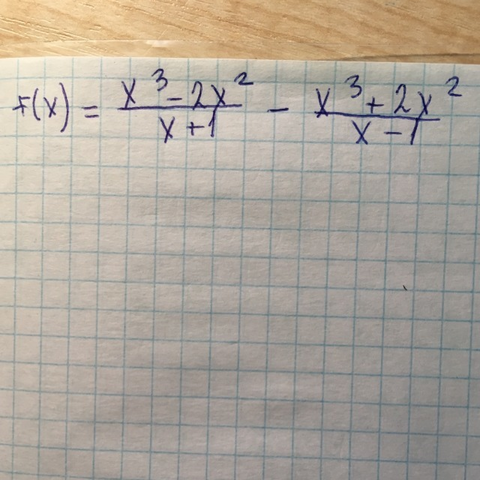 f(x) = \frac{x^3 - 2x^2}{x + 1} - \frac{x^3 + 2x^2}{x - 1}